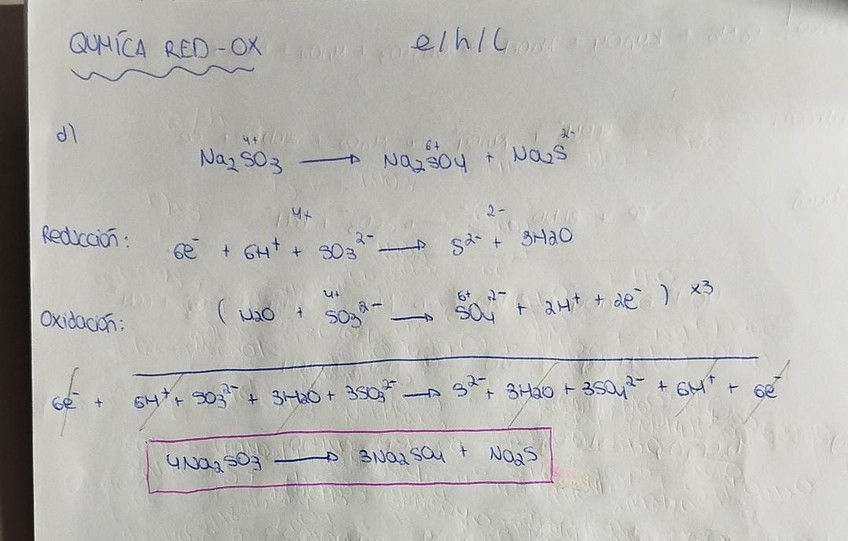 QUMÍCA RED-OX e/h/l
d)
Na₂S⁴⁺O₃ → Na₂S⁶⁺O₄ + Na₂S²⁻
Reducción: 6e⁻ + 6H⁺ + S⁴⁺O₃²⁻ → S²⁻ + 3H₂O
Oxidación: (H₂O + S⁴⁺O₃²⁻ → S⁶⁺O₄²⁻ + 2H⁺ + 2e⁻) x3
6e⁻ + 6H⁺ + SO₃²⁻ + 3H₂O + 3SO₃²⁻ → S²⁻ + 3H₂O + 3SO₄²⁻ + 6H⁺ + 6e⁻
4Na₂SO₃ → 3Na₂SO₄ + Na₂S